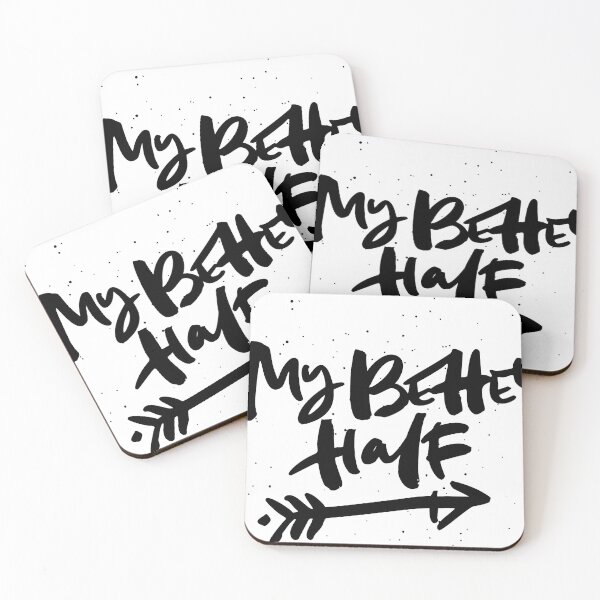 My Better
Half
My Better
Half
My Better
Half
My Better
Half